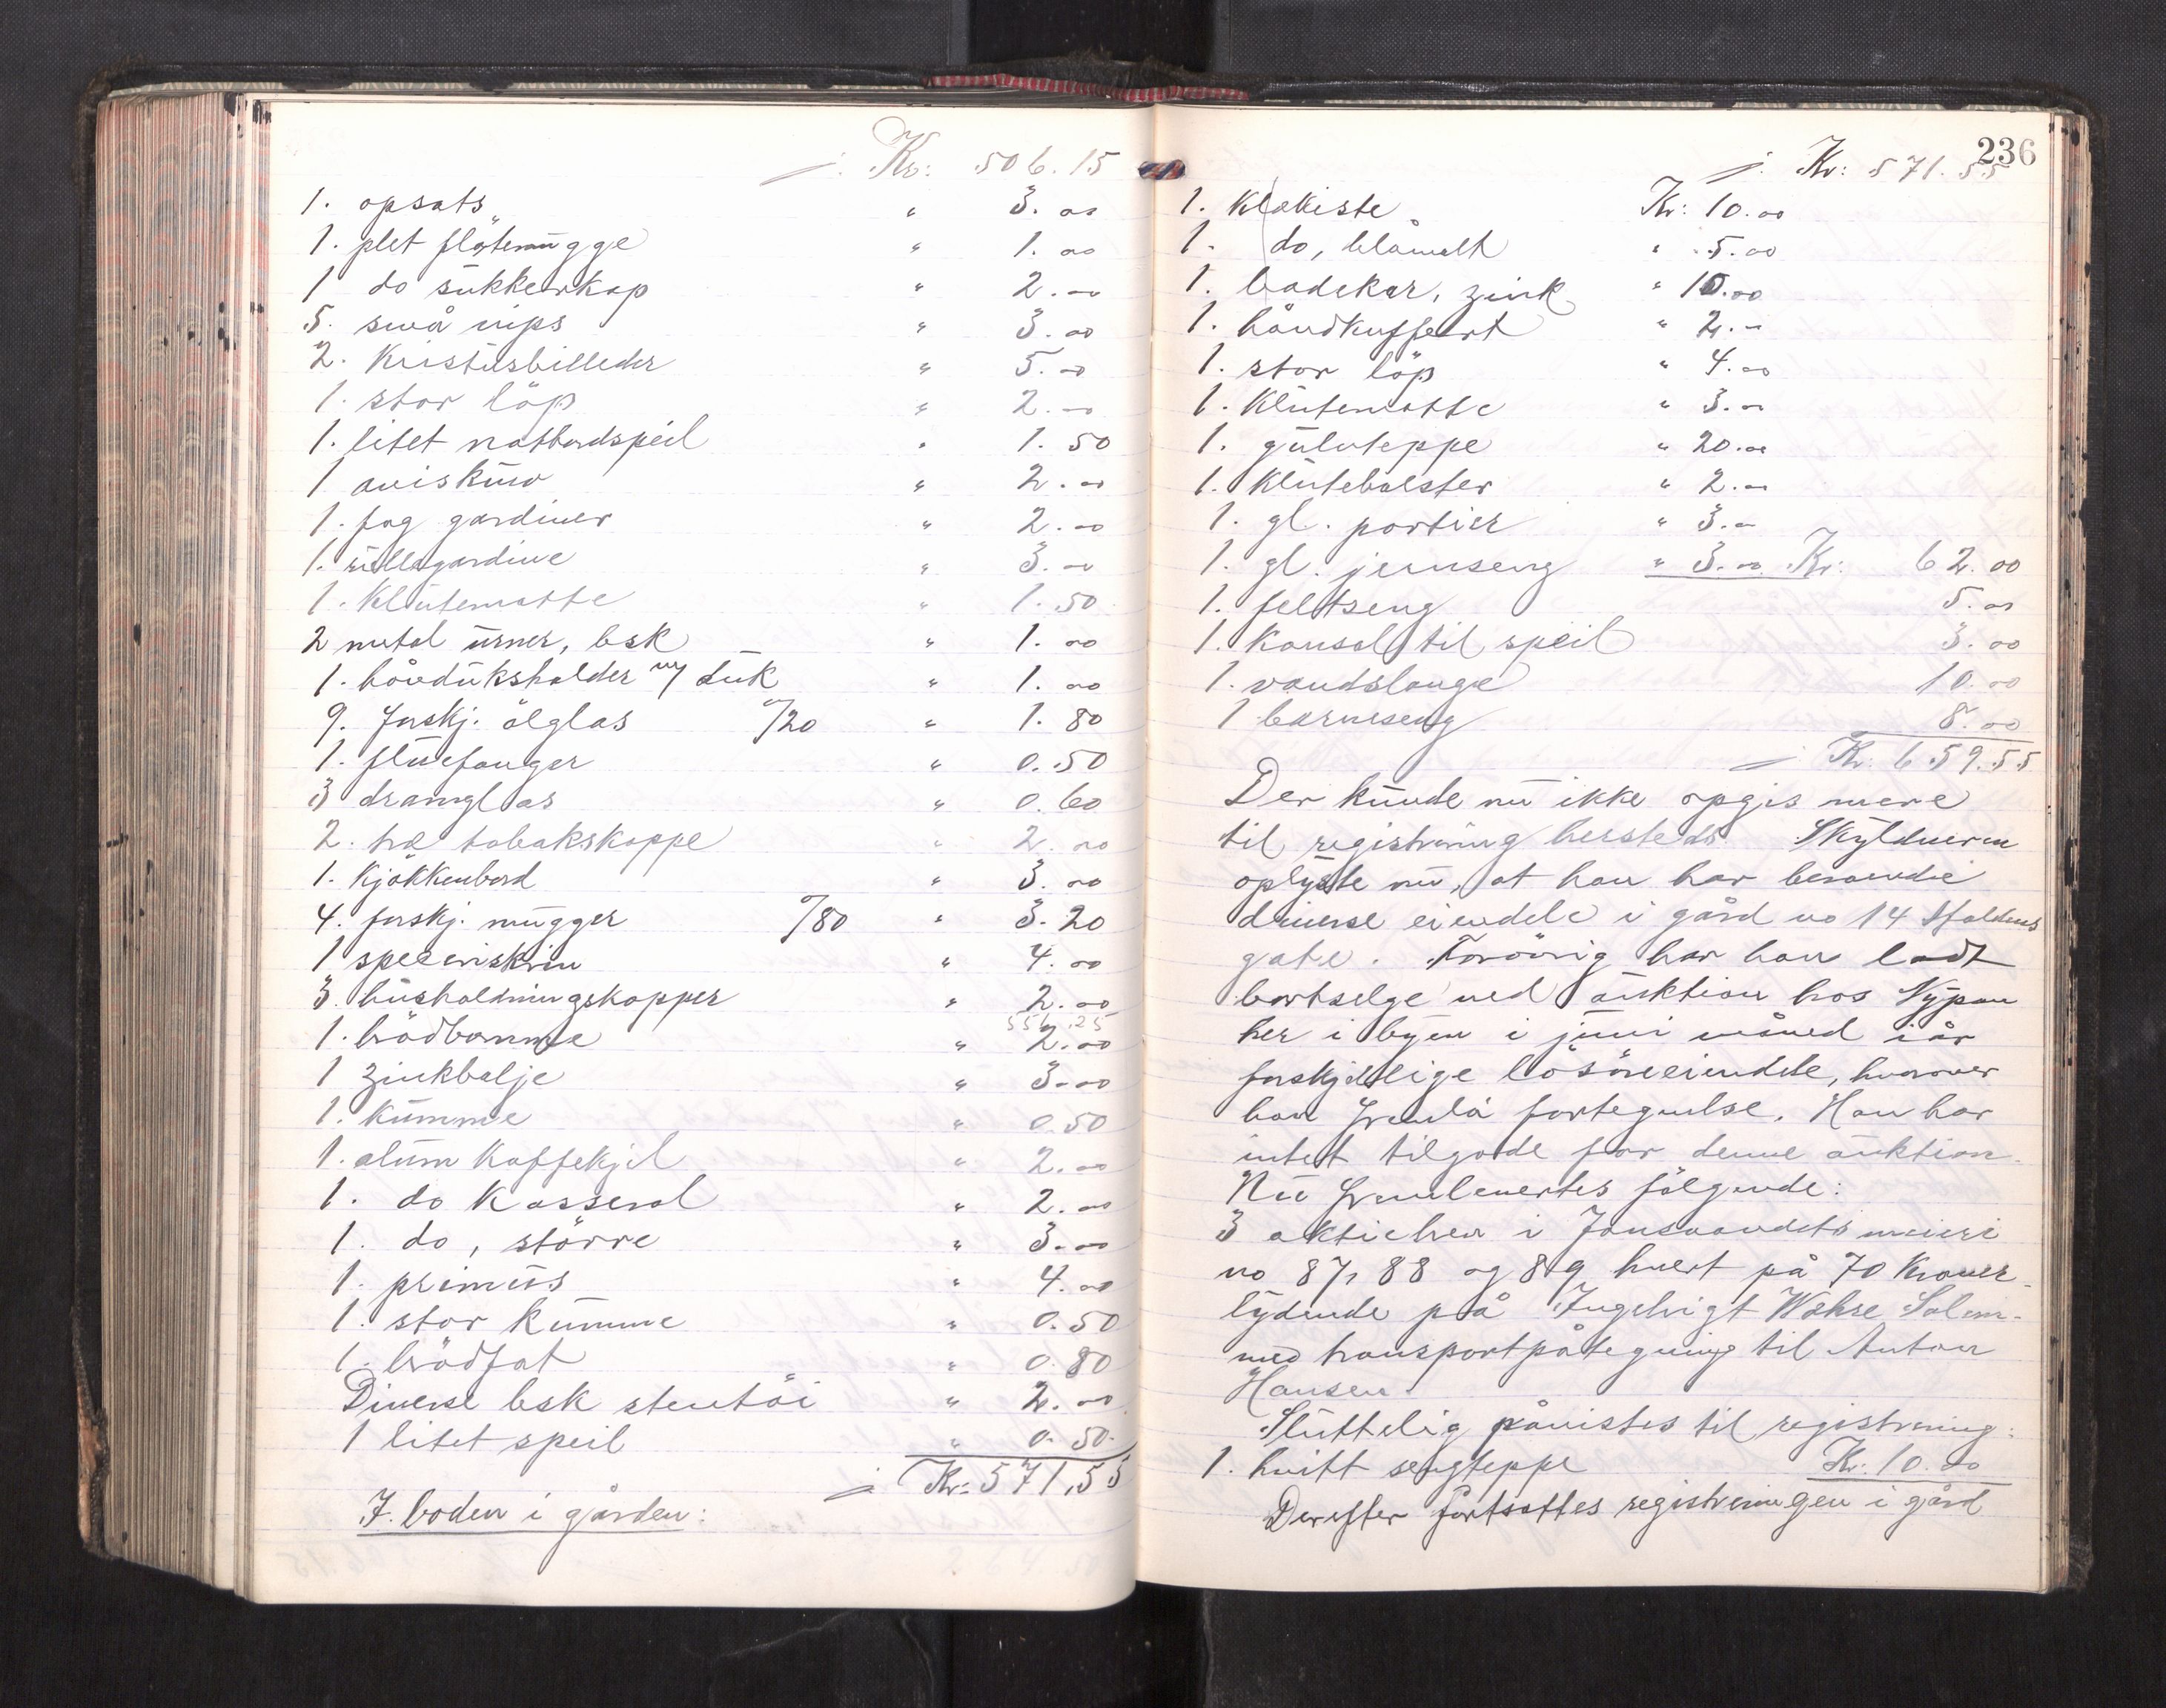 ÷ Kr: 506.15
1. opsats " 3.00
1. plet fløtemugge " 1.00
1 do sukkerkop " 2.00
5. små nips " 3.00
2. Kristusbilleder " 5.00
1. stor löp " 2.00
1. litet natbordspeil " 1.50
1 aviskurv " 2.00
1. fag gardiner " 2.00
1. rullegardine " 3.00
1. Klutematte " 1.50
2 metal urner, besk " 1.00
1. håndduksholder m/ duk " 1.00
9. forskj. ölglas a/20 " 1.80
1. fluefanger " 0.50
3 dramglas " 0.60
2. træ tobakskoppe " 2.00
1. Kjökkenbord " 3.00
4. forskj. mugger a/80 " 3.20
1 speceriskrin " 4.00
3. husholdningskopper " 2.00
556.25
1. brödbomme " 2.00
1 zinkbalje " 3.00
1. Kumme " 0.50
1. alum Kaffekjel " 2.00
1. do Kasserol " 2.00
1. do, större " 3.00
1. primus " 4.00
1. stor Kumme " 0.50
1. brödfat " 0.80
Diverse besk stentöi " 2.00
1 litet speil " 0.50
÷ Kr: 571,55
I boden i gården:
236
÷ Kr: 571.55
1. Klækiste Kr: 10.00
1. do, blåmalt " 5.00
1. badekar, zink " 10.00
1. håndkuffert " 2.00
1. stor löp " 4.00
1. Klutematte " 3.00
1. gulvteppe " 20.00
1. Klutebolster " 2.00
1. gl. portier " 3.00
1. gl. jernseng " 3.00 Kr: 62.00
1. feltseng 5.00
1. Konsol til speil 3.00
1. vandslange 10.00
1 barneseng 8.00
÷ Kr: 659.55
Der kunde nu ikke opgis mere
til registrering hersteds. Skyldneren
oplyste nu, at han har beroende
diverse eiendele i gård no 14
gate. Forövrig har han ladt
bortselge ved auktion hos Nypan
her i byen i juni måned iår
forskjellige lösöreeiendele, hvorover
han fremla fortegnelse. Han har
intet tilgode for denne auktion.
Nu fremlevertes fölgende:
3 aktiebrev i Jonsvandets meieri
no 87, 88 og 89 hvert på 70 Kroner
lydende på Ingebrigt Wahse Solem
med transportpåtegning til Anton
Hansen.
Sluttelig påvistes til registrering:
1. hvitt sengteppe Kr: 10.00
Derefter fortsattes registreringen i gård